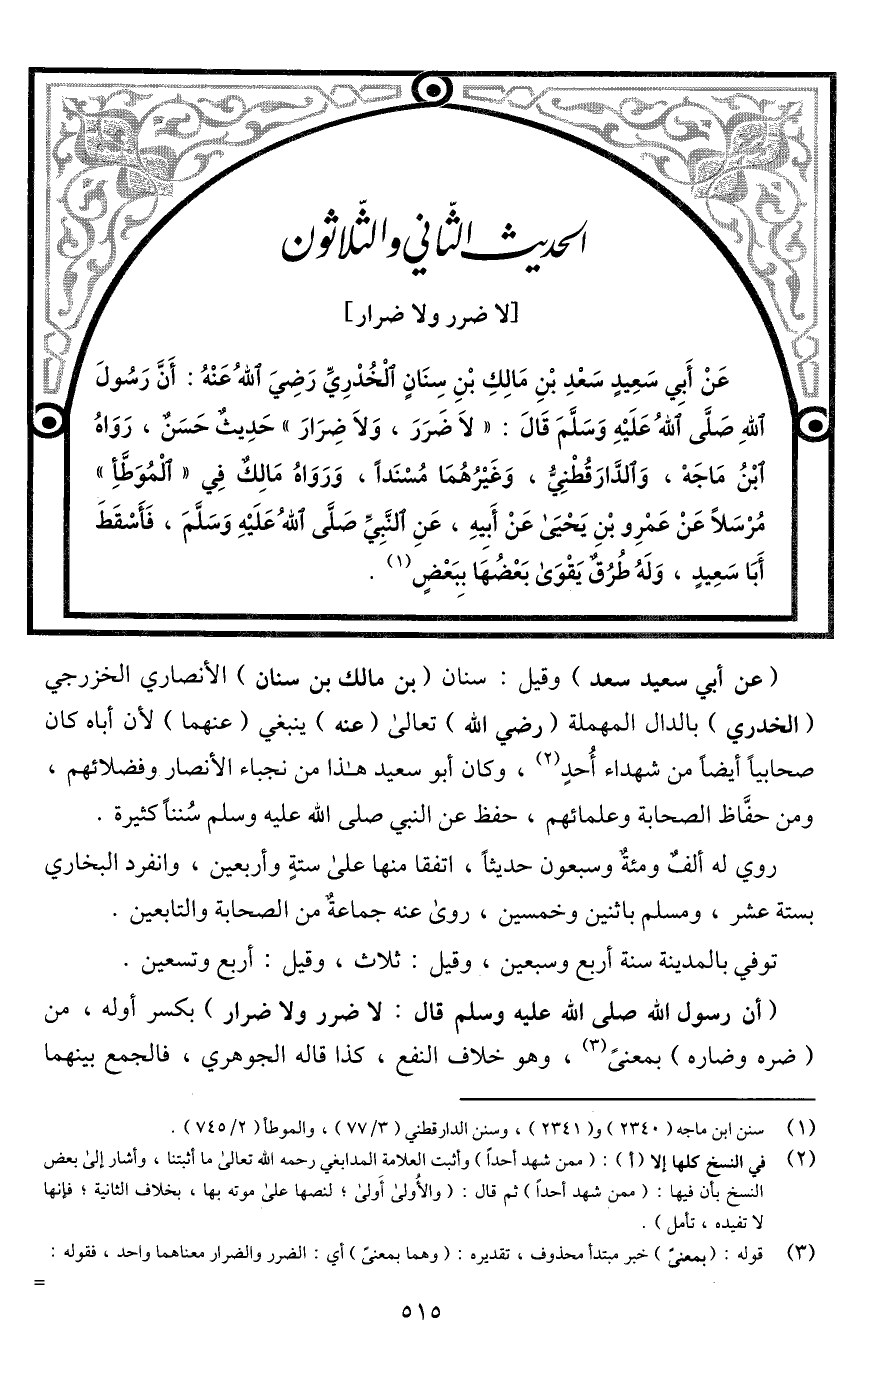 الحديث الثّاني والثّلاثون
[لا ضرر ولا ضرار]
عَنْ أَبِي سَعِيدٍ سَعْدِ بْنِ مَالِكِ بْنِ سِنَانٍ ٱلْخُدْرِيِّ رَضِيَ ٱللهُ عَنْهُ : أَنَّ رَسُولَ
ٱللهِ صَلَّى ٱللهُ عَلَيْهِ وَسَلَّمَ قَالَ : « لاَ ضَرَرَ ، وَلاَ ضِرَارَ » حَدِيثٌ حَسَنٌ ، رَوَاهُ
ٱبْنُ مَاجَهْ ، وَٱلدَّارَقُطْنِيُّ ، وَغَيْرُهُمَا مُسْنَداً ، وَرَوَاهُ مَالِكٌ فِي « ٱلْمُوَطَّأِ »
مُرْسَلاً عَنْ عَمْرِو بْنِ يَحْيَىٰ عَنْ أَبِيهِ ، عَنِ ٱلنَّبِيِّ صَلَّى ٱللهُ عَلَيْهِ وَسَلَّمَ ، فَأَسْقَطَ
أَبَا سَعِيدٍ ، وَلَهُ طُرُقٌ يَقْوَىٰ بَعْضُهَا بِبَعْضٍ(١) .
( عن أبي سعيد سعد ) وقيل : سنان ( بن مالك بن سنان ) الأنصاري الخزرجي
( الخدري ) بالدال المهملة ( رضي الله ) تعالىٰ ( عنه ) ينبغي ( عنهما ) لأن أباه كان
صحابياً أيضاً من شهداء أُحدٍ(٢) ، وكان أبو سعيد هـٰذا من نجباء الأنصار وفضلائهم ،
ومن حفَّاظ الصحابة وعلمائهم ، حفظ عن النبي صلى الله عليه وسلم سُنناً كثيرة .
روي له ألفٌ ومئةٌ وسبعون حديثاً ، اتفقا منها علىٰ ستةٍ وأربعين ، وانفرد البخاري
بستة عشر ، ومسلم باثنين وخمسين ، روىٰ عنه جماعةٌ من الصحابة والتابعين .
توفي بالمدينة سنة أربع وسبعين ، وقيل : ثلاث ، وقيل : أربع وتسعين .
( أن رسول الله صلى الله عليه وسلم قال : لا ضرر ولا ضرار ) بكسر أوله ، من
( ضره وضاره ) بمعنىً(٣) ، وهو خلاف النفع ، كذا قاله الجوهري ، فالجمع بينهما
(١) سنن ابن ماجه ( ٢٣٤٠ ) و( ٢٣٤١ ) ، وسنن الدارقطني ( ٣/ ٧٧ ) ، والموطأ ( ٢/ ٧٤٥ ) .
(٢) في النسخ كلها إلا ( أ ) : ( ممن شهد أحداً ) وأثبت العلامة المدابغي رحمه الله تعالىٰ ما أثبتنا ، وأشار إلىٰ بعض
النسخ بأن فيها : ( ممن شهد أحداً ) ثم قال : ( والأُولىٰ أَولىٰ ؛ لنصها علىٰ موته بها ، بخلاف الثانية ؛ فإنها
لا تفيده ، تأمل ) .
(٣) قوله : ( بمعنىً ) خبر مبتدأ محذوف ، تقديره : ( وهما بمعنىً ) أي : الضرر والضرار معناهما واحد ، فقوله :
=
٥١٥